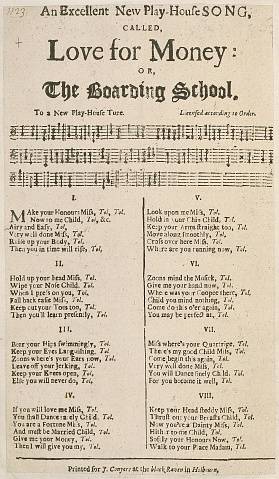 1123.
An Excellent New Play-House SONG,
CALLED,
Love for Money:
OR,
The Boarding School.
To a New Play-House Tune. Licensed according to Order.
I.
MAke your Honours Miss, Tol, Tol,
Now to me Child, Tol, &c.
Airy and Easy, Tol,
Very well done Miss, Tol,
Raise up your Body, Tol,
Then you in time will rise, Tol,
II.
Hold up your head Miss, Tol,
Wipe your Nose Child, Tol,
When I press on you, Tol,
Fall back easie Miss, Tol,
Keep out your Toes too, Tol,
Then you'll learn presently, Tol,
III.
Bear your Hips swimmingly, Tol,
Keep your Eyes Languishing, Tol,
Zoons where's your Ears now, Tol,
Leave off your Jerking, Tol,
Keep your Knees open, Tol,
Else you will never do, Tol,
IV.
If you will love me Miss, Tol,
You shall Dance rarely Child, Tol,
You are a Fortune Miss, Tol,
And must be Married Child, Tol,
Give me your Money, Tol,
Then I will give you my, Tol.
V.
Look upon me Miss, Tol,
Hold in your Chin Child, Tol,
Keep your Arms straight too, Tol,
Move along smoothly, Tol,
Cross over here Miss, Tol,
Where are you running now, Tol,
VI.
Zoons mind the Musick, Tol,
Give me your hand now, Tol,
Where was your Cooper there, Tol,
Child you mind nothing, Tol,
Come do this o'er again, Tol,
You may be perfect at, Tol,
VII.
Miss where's your Quartripe, Tol,
There's my good Child Miss, Tol,
Come begin this again, Tol,
Very well done Miss, Tol,
You will Dance finely Child, Tol,
For you become it well, Tol,
VIII.
Keep your Head steddy Miss, Tol,
Thrust out your Breasts Child, Tol,
Now you're a Dainty Miss, Tol,
Hither to me Child, Tol,
Softly your Honours Now, Tol,
Walk to your Place Madam, Tol,
Printed for J. Conyers at the black Raven in Holbourn,